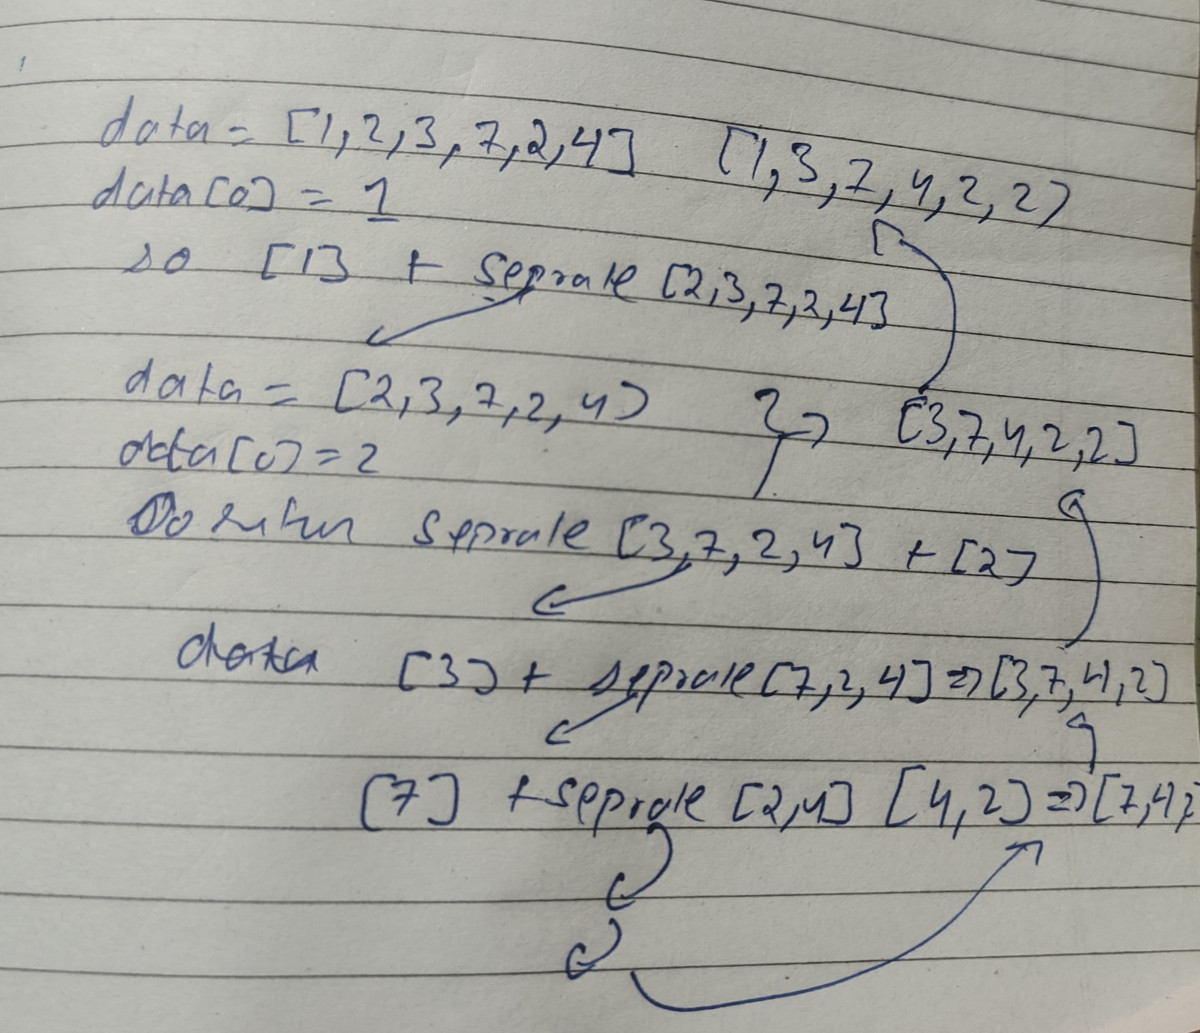 data = [1,2,3,7,2,4] [1,3,7,4,2,2)
data[0] = 1
so [1] + seprate [2,3,7,2,4]
data = [2,3,7,2,4) [3,7,4,2,2]
data[0) = 2
seprate [3,7,2,4] + [2]
data [3] + seprate [7,2,4] => [3,7,4,2]
[7] + seprate [2,4] [4,2] => [7,4,